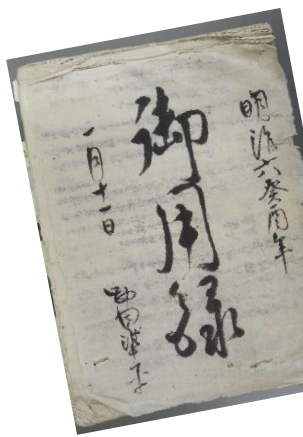 明治六癸酉年
御用録
一月十一日